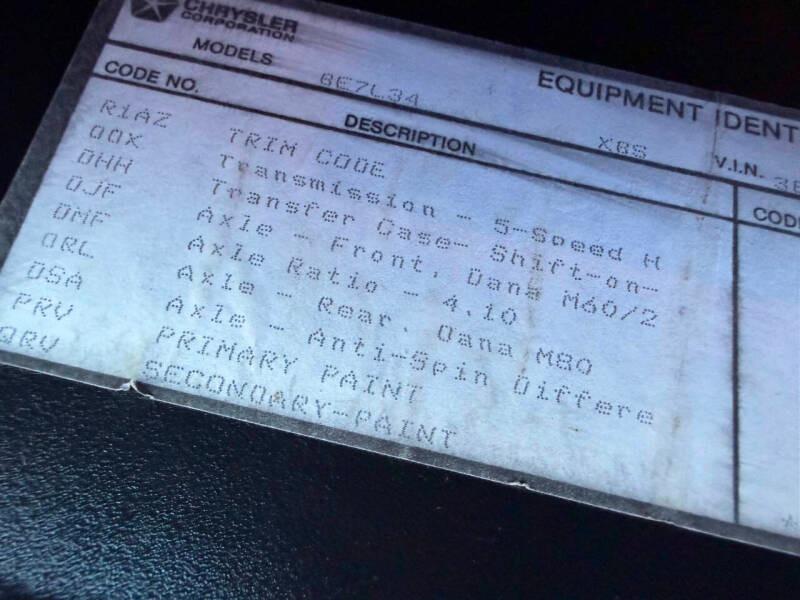 CHRYSLER
CORPORATION
EQUIPMENT IDENT
MODELS BE7L34 XBS V.I.N. 3B
CODE NO. DESCRIPTION COD
R1AZ TRIM CODE
DDX Transmission - 5-Speed H
DHH Transfer Case- Shift-on-
DJF Axle - Front, Dana M60/2
DMF Axle Ratio - 4.10
DRL Axle - Rear, Dana M80
DSA Axle - Anti-Spin Differe
PRV PRIMARY PAINT
QRV SECONDARY-PAINT